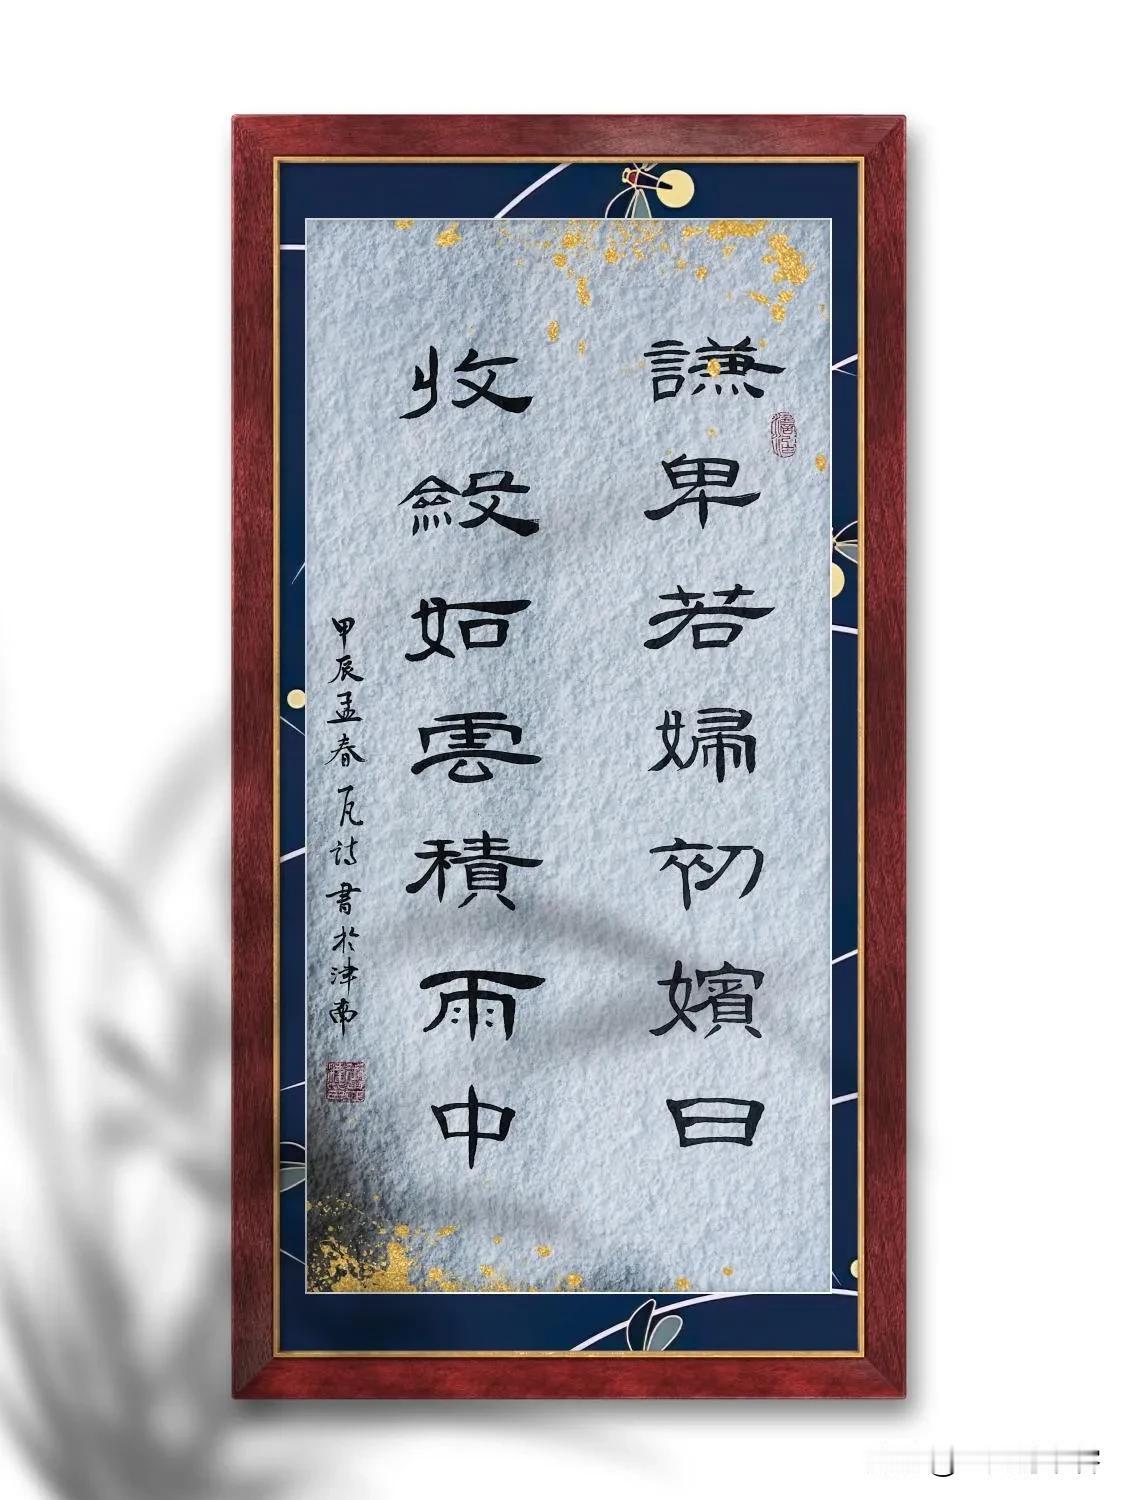 謙卑若婦初嬪日
收斂如雲積雨中
甲辰孟春瓦詩書於津南